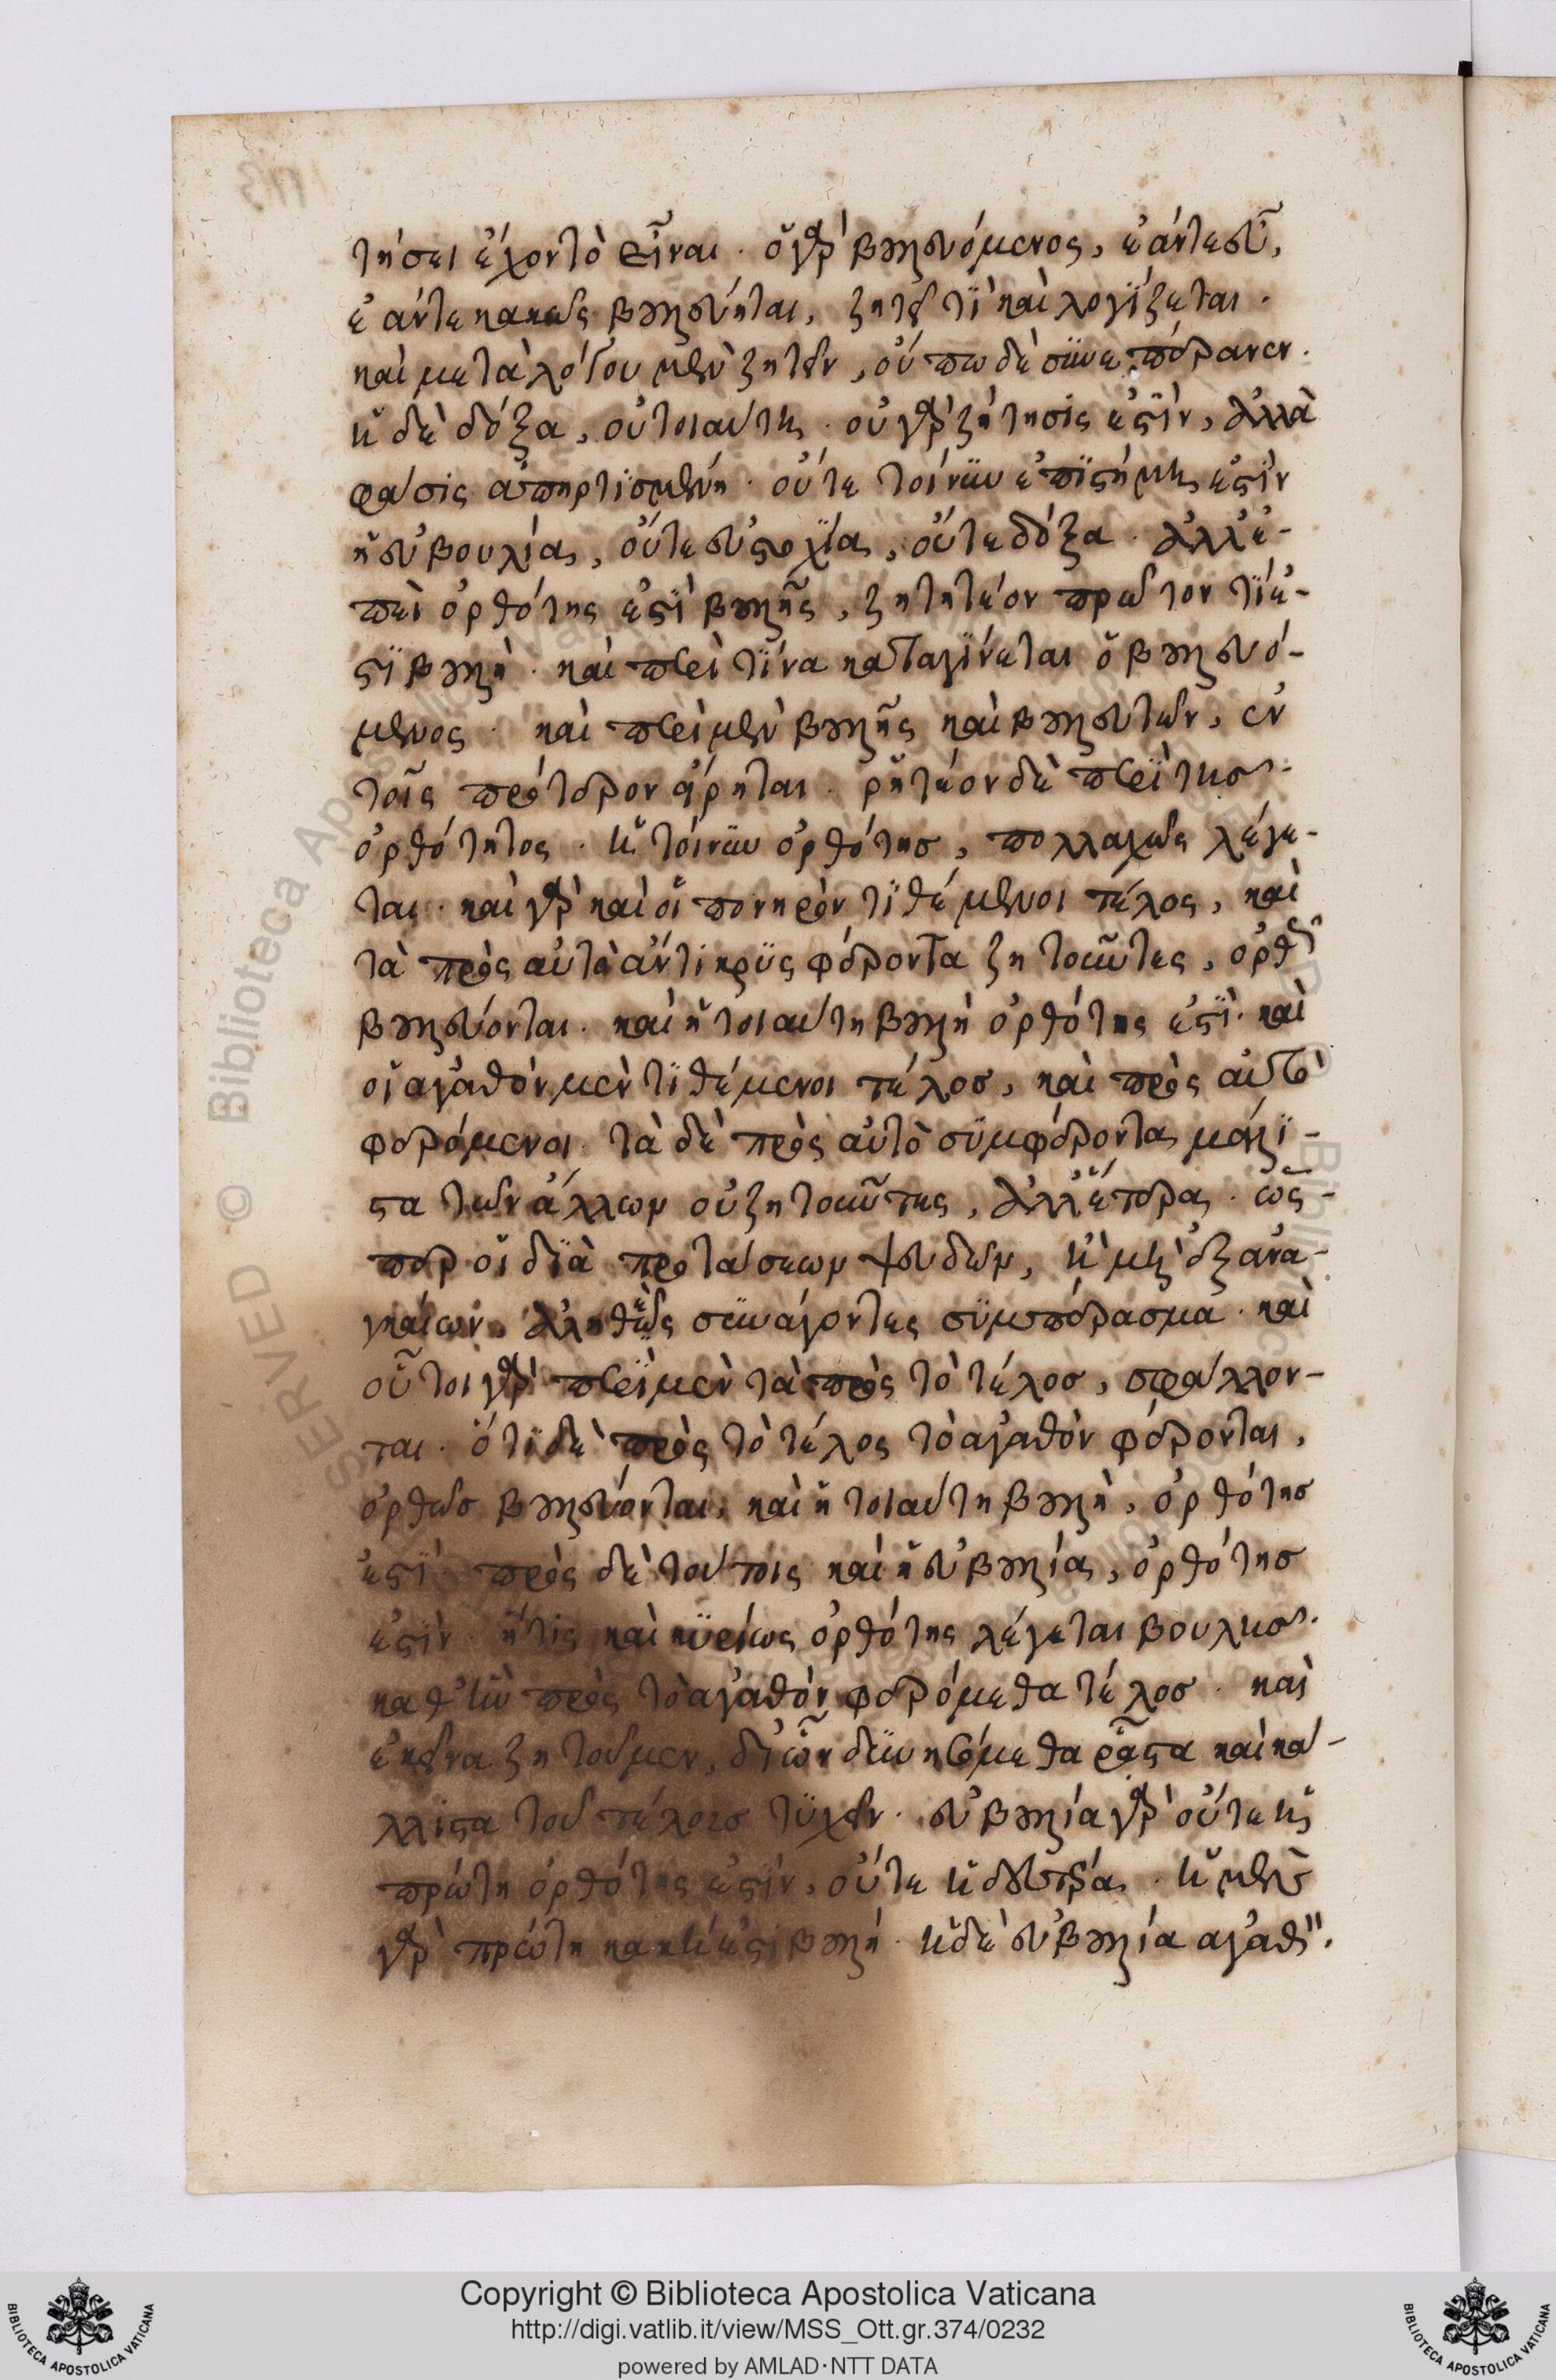 τήσει ἔχον τὸ εἶναι. ὁ γὰρ βουλευόμενος, ἐάντε εὖ,
ἐάντε κακῶς βουλεύηται, ζητεῖ τὶ καὶ λογίζεται.
καὶ μετὰ λόγου μὲν ζητεῖν, οὔπω δὲ συνεπέρανεν.
ἡ δὲ δόξα, οὐ τοιαύτη. οὐ γὰρ ζήτησίς ἐστιν, ἀλλὰ
φάσις ἀπηρτισμένη. οὔτε τοίνυν ἐπιστήμη ἐστὶν
ἡ εὐβουλία, οὔτε εὐστοχία, οὔτε δόξα. ἀλλ' ἐ-
πεὶ ὀρθότης ἐστὶ βουλῆς, ζητητέον πρῶτον τί ἐ-
στι βουλή. καὶ περὶ τίνα καταγίνεται ὁ βουλευό-
μενος. καὶ περὶ μὲν βουλῆς καὶ βουλευτῶν, ἐν
τοῖς πρότερον εἴρηται. ῥητέον δὲ περὶ τῆς
ὀρθότητος. ἡ τοίνυν ὀρθότης, πολλαχῶς λέγε-
ται. καὶ γὰρ καὶ οἱ πονηρὸν τιθέμενοι τέλος, καὶ
τὰ πρὸς αὐτὸ ἀντικρὺς φέροντα ζητοῦντες, ὀρθῶς
βουλεύονται. καὶ ἡ τοιαύτη βουλὴ ὀρθότης ἐστὶ. καὶ
οἱ ἀγαθὸν μὲν τιθέμενοι τέλος, καὶ πρὸς αὐτὸ
φερόμενοι. τὰ δὲ πρὸς αὐτὸ συμφέροντα μάλι-
στα τῶν ἄλλων οὐ ζητοῦντες, ἀλλ' ἕτερα. ὥσ-
περ οἱ διὰ προτάσεων ψευδῶν, ἢ μὴ ἐξ ἀνα-
γκαίων, ἀληθὲς συνάγοντες συμπέρασμα. καὶ
οὗτοι γὰρ περὶ μὲν τὰ πρὸς τὸ τέλος, σφάλλον-
ται. ὅτι δὲ πρὸς τὸ τέλος τὸ ἀγαθὸν φέρονται,
ὀρθῶς βουλεύονται, καὶ ἡ τοιαύτη βουλὴ, ὀρθότης
ἐστὶ. πρὸς δὲ τούτοις καὶ ἡ εὐβουλία, ὀρθότης
ἐστὶν. ἥτις καὶ κυρίως ὀρθότης λέγεται βουλῆς.
καθ' ἣν πρὸς τὸ ἀγαθὸν φερόμεθα τέλος. καὶ
ἐκεῖνα ζητοῦμεν, δι' ὧν δυνησόμεθα ῥᾷστα καὶ κά-
λλιστα τοῦ τέλους τυχεῖν. εὐβουλία γὰρ οὔτε ἡ
πρώτη ὀρθότης ἐστὶν, οὔτε ἡ δευτέρα. ἡ μὲν
γὰρ πρώτη κακή ἐστι βουλή. ἡ δὲ εὐβουλία ἀγαθή.
Copyright © Biblioteca Apostolica Vaticana
http://digi.vatlib.it/view/MSS_Ott.gr.374/0232
powered by AMLAD·NTT DATA